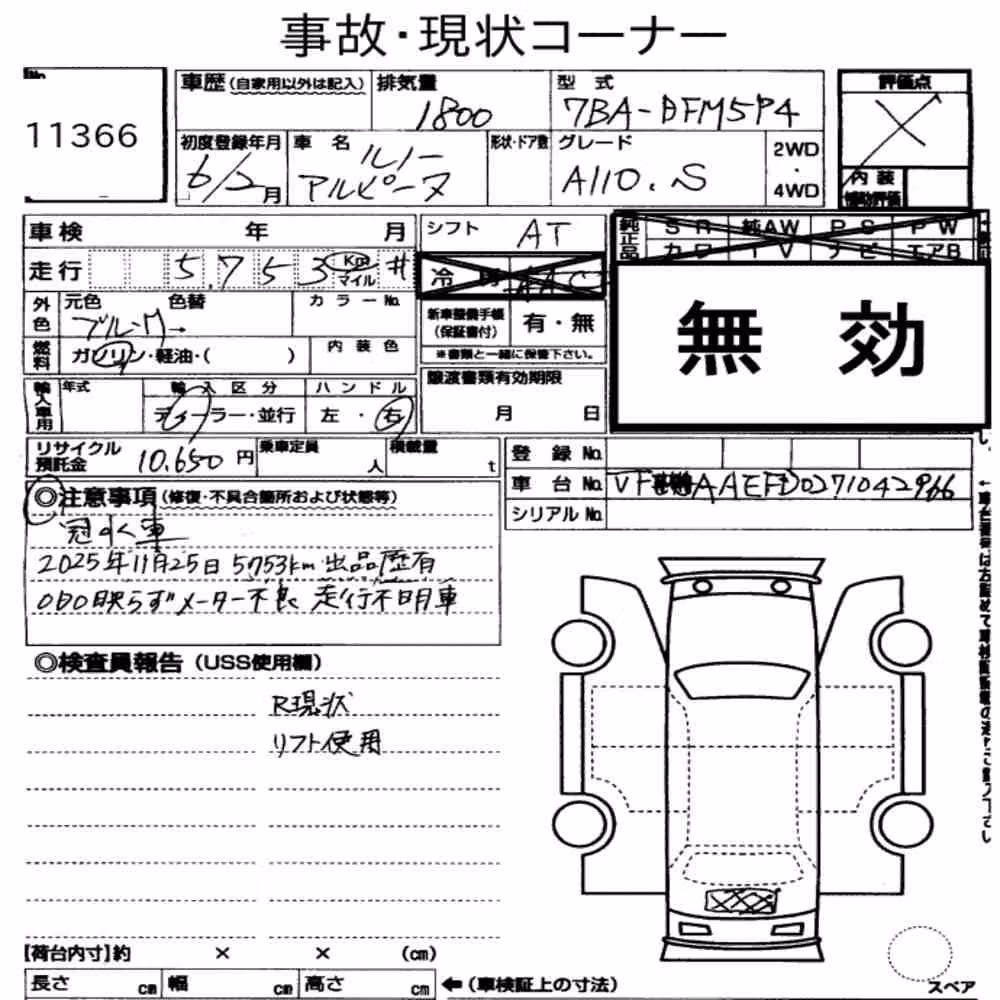 事故・現状コーナー
No
11366
車歴(自家用以外は記入)
排気量
1800
型式
7BA-DFM5P4
評価点
X
初度登録年月
6/2月
車名
ルノー
アルピーヌ
形状・ドア数
グレード
A110.S
2WD
・
4WD
内装
補助評価
車検 年 月
シフト AT
純正品
SR 純AW PS PW
カワ TV ナビ エアB
走行 5,753 Km マイル #
冷房 AAC
無効
外色
元色 色替
ブルーM→
カラーNo.
新車整備手帳
(保証書付)
有・無
燃料
ガソリン・軽油・( )
内装色
※書類と一緒に保管下さい。
輸入車用
年式
輸入区分
ディーラー・並行
ハンドル
左・右
譲渡書類有効期限
月 日
リサイクル
預託金
10,650円
乗車定員
人
積載量
t
登録No.
車台No.
AAEFD0271042966
シリアルNo.
◎注意事項(修復・不具合箇所および状態等)
冠水車
2025年11月25日 5753km 出品歴有
ODO映らずメーター不良 走行不明車
◎検査員報告(USS使用欄)
R現状
リフト使用
【荷台内寸】約 × × (cm)
長さ cm 幅 cm 高さ cm ←(車検証上の寸法)
スペア